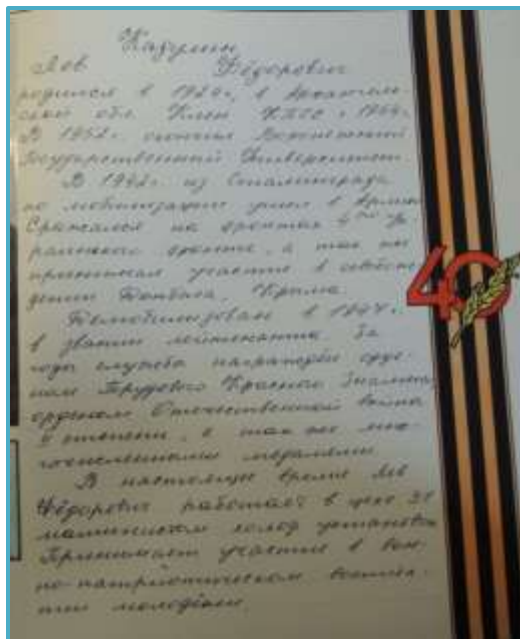 Лев Фёдорович
родился в 1924г. в Архангель-
ской обл. Член КПСС с
В 1952г. окончил Воронежский
Государственный Университет.
В 1942г. из Сталинграда
по мобилизации ушел в Армию
Сражался на фронтах 4го Ук-
раинского фронта, а так же
принимал участие в освобож-
дении Донбаса, Крыма.
Демобилизован в
в звании лейтенанта. За
годы службы награждён орде-
ном Трудового Красного Знамени,
орденом Отечественной войны
II степени, а так же мно-
гочисленными медалями.
В настоящую время Лев
Фёдорович работает в цехе
машинистом холод установок
Принимает участие в воен-
но-патриотическом воспита-
нии молодёжи.
40